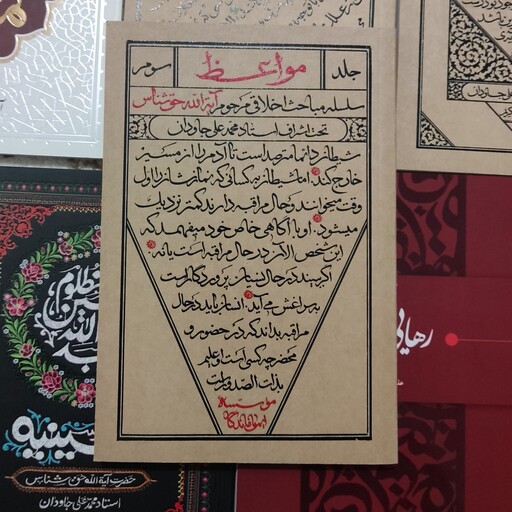 جلد
مواعظ
سوم
سلسله مباحث اخلاقی مرحوم آیة الله حق شناس
تحت اشراف استاد محمد علی جاودان
شیطان دائما مترصد است تا آدم را از مسیر
خارج کند. اما شیطان به کسانی که نماز شان را اول
وقت میخوانند و حال مراقبه دارند کمتر نزدیک
میشود. او با آگاهی خاص خود میفهمد که
این شخص الآن در حال مراقبه است یا نه.
اگر ببیند در حال نسیان پروردگار است
به سراغش می آید. انسان باید در حال
مراقبه بداند که در حضور و
محضر چه کسی است و علیم
بذات الصدور است
موسسه
رهایی
حضرت آیة الله حق شناس
استاد محمد علی جاودان